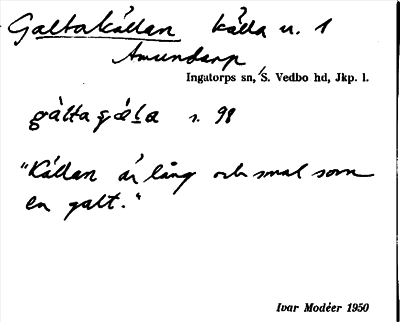 Galtakällan källa n. 1
Amundarp
Ingatorps sn, S. Vedbo hd, Jkp. l.
s. 98
"Källan är lång och smal som
en galt."
Ivar Modéer 1950